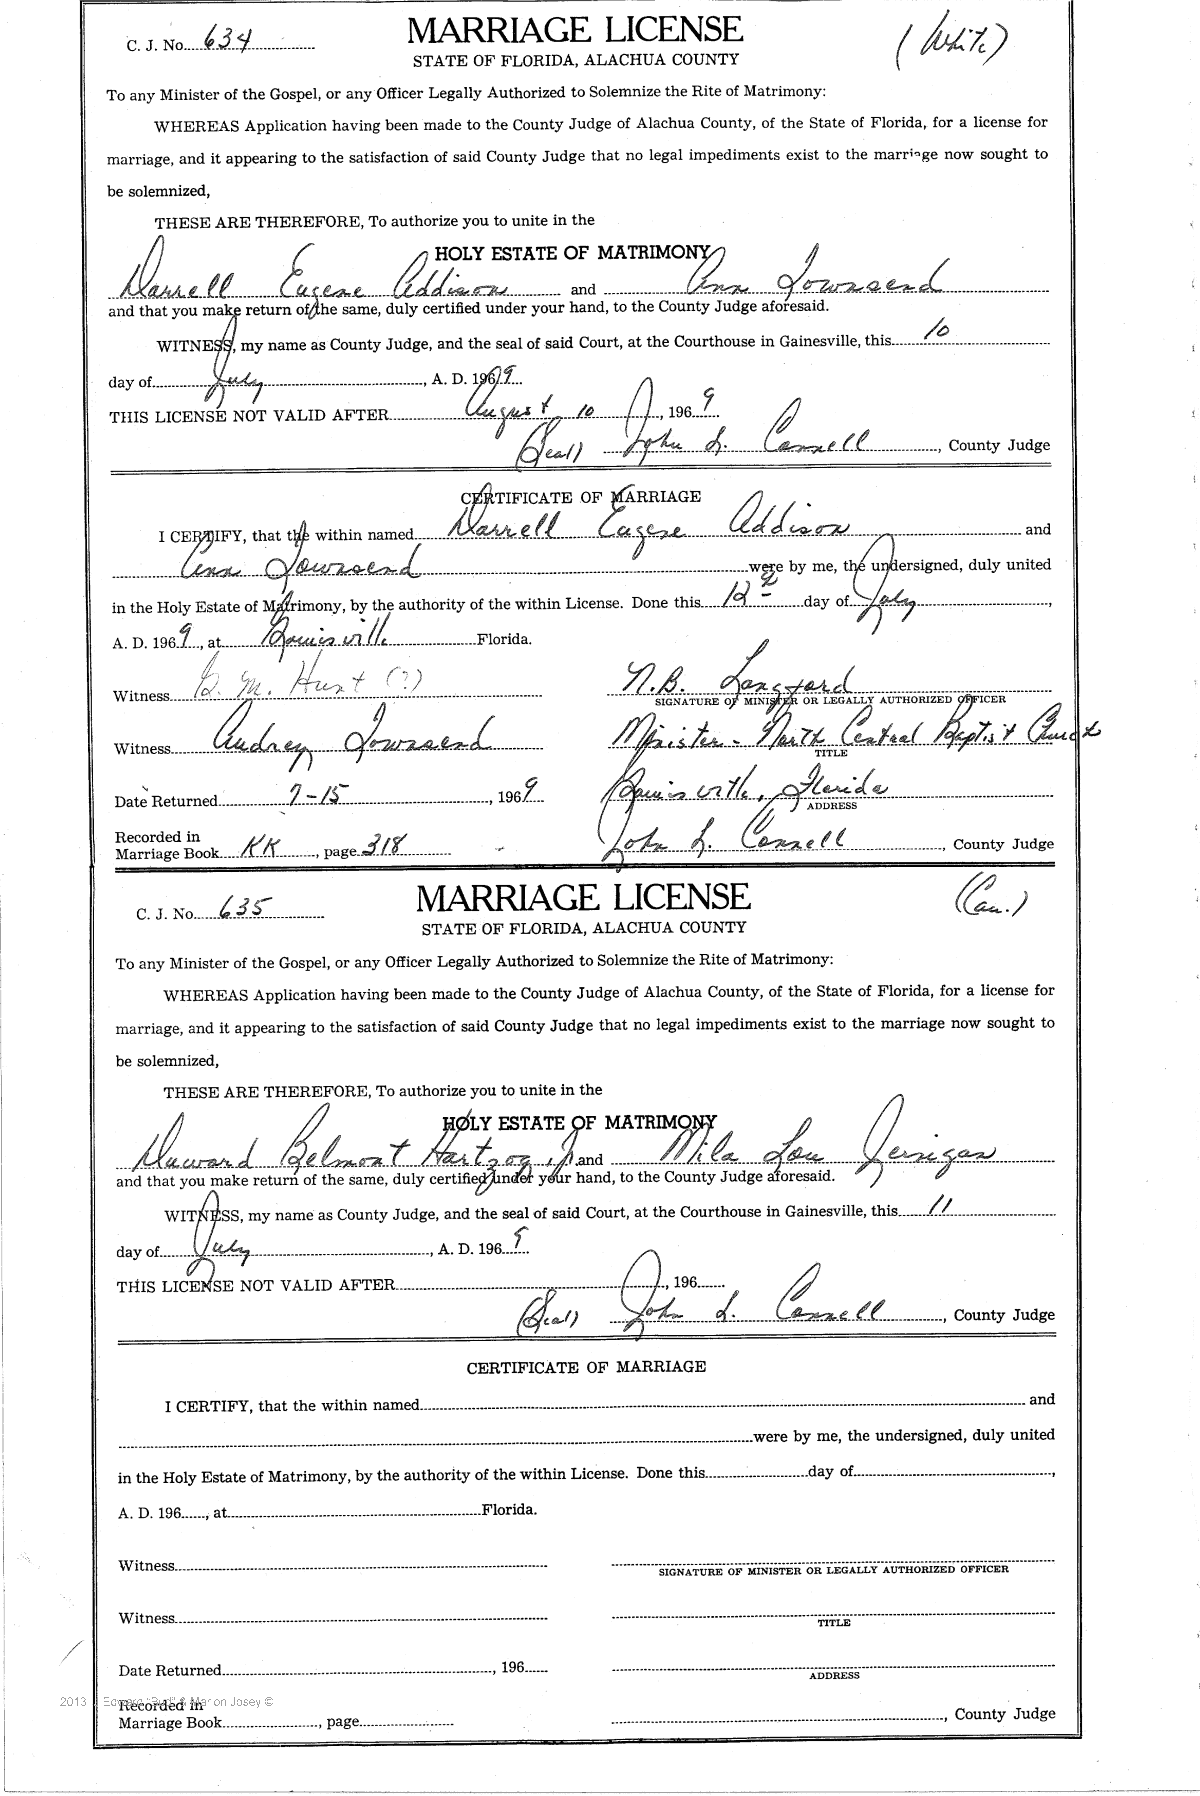 C. J. No. 634
MARRIAGE LICENSE
(White)
STATE OF FLORIDA, ALACHUA COUNTY
To any Minister of the Gospel, or any Officer Legally Authorized to Solemnize the Rite of Matrimony:
WHEREAS Application having been made to the County Judge of Alachua County, of the State of Florida, for a license for
marriage, and it appearing to the satisfaction of said County Judge that no legal impediments exist to the marriage now sought to
be solemnized,
THESE ARE THEREFORE, To authorize you to unite in the
HOLY ESTATE OF MATRIMONY
Darrell Eugene Addison and Ann Townsend
and that you make return of the same, duly certified under your hand, to the County Judge aforesaid.
WITNESS, my name as County Judge, and the seal of said Court, at the Courthouse in Gainesville, this 10
day of July, A. D. 1969
THIS LICENSE NOT VALID AFTER August 10, 1969
(Seal) John L. Connell, County Judge
CERTIFICATE OF MARRIAGE
I CERTIFY, that the within named Darrell Eugene Addison and
Ann Townsend were by me, the undersigned, duly united
in the Holy Estate of Matrimony, by the authority of the within License. Done this 12 day of July,
A. D. 1969, at Gainesville Florida.
Witness G. M. Hunt (?) N.B. Langford
SIGNATURE OF MINISTER OR LEGALLY AUTHORIZED OFFICER
Witness Audrey Townsend Minister - North Central Baptist Church
TITLE
Date Returned 7-15, 1969 Gainesville, Florida
ADDRESS
Recorded in
Marriage Book KK, page 318 John L. Connell, County Judge
C. J. No. 635
MARRIAGE LICENSE
(Cau.)
STATE OF FLORIDA, ALACHUA COUNTY
To any Minister of the Gospel, or any Officer Legally Authorized to Solemnize the Rite of Matrimony:
WHEREAS Application having been made to the County Judge of Alachua County, of the State of Florida, for a license for
marriage, and it appearing to the satisfaction of said County Judge that no legal impediments exist to the marriage now sought to
be solemnized,
THESE ARE THEREFORE, To authorize you to unite in the
HOLY ESTATE OF MATRIMONY
Duward Belmont Hartzog, Jr. and Mila Lou Jernigan
and that you make return of the same, duly certified under your hand, to the County Judge aforesaid.
WITNESS, my name as County Judge, and the seal of said Court, at the Courthouse in Gainesville, this 11
day of July, A. D. 1969
THIS LICENSE NOT VALID AFTER, 196
(Seal) John L. Connell, County Judge
CERTIFICATE OF MARRIAGE
I CERTIFY, that the within named and
were by me, the undersigned, duly united
in the Holy Estate of Matrimony, by the authority of the within License. Done this day of,
A. D. 196, at Florida.
Witness
SIGNATURE OF MINISTER OR LEGALLY AUTHORIZED OFFICER
Witness
TITLE
Date Returned, 196
ADDRESS
2013 Edward "Bud" & Marion Josey ©
Recorded in
Marriage Book, page, County Judge